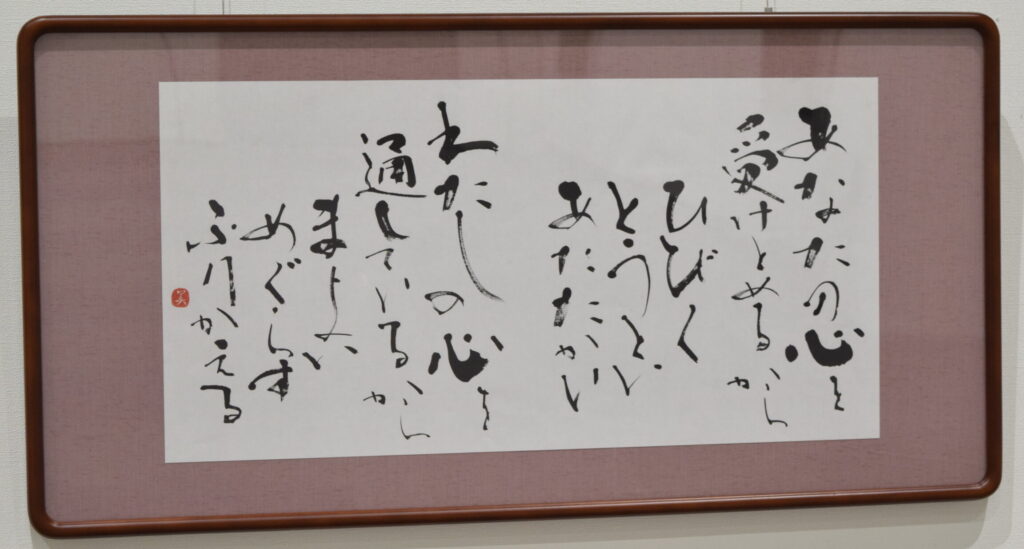 あなたの心を
受けとめるから
ひびく
とうとい
あたたかい
わたしの心を
通しているから
まよい
めぐらす
ふりかえる